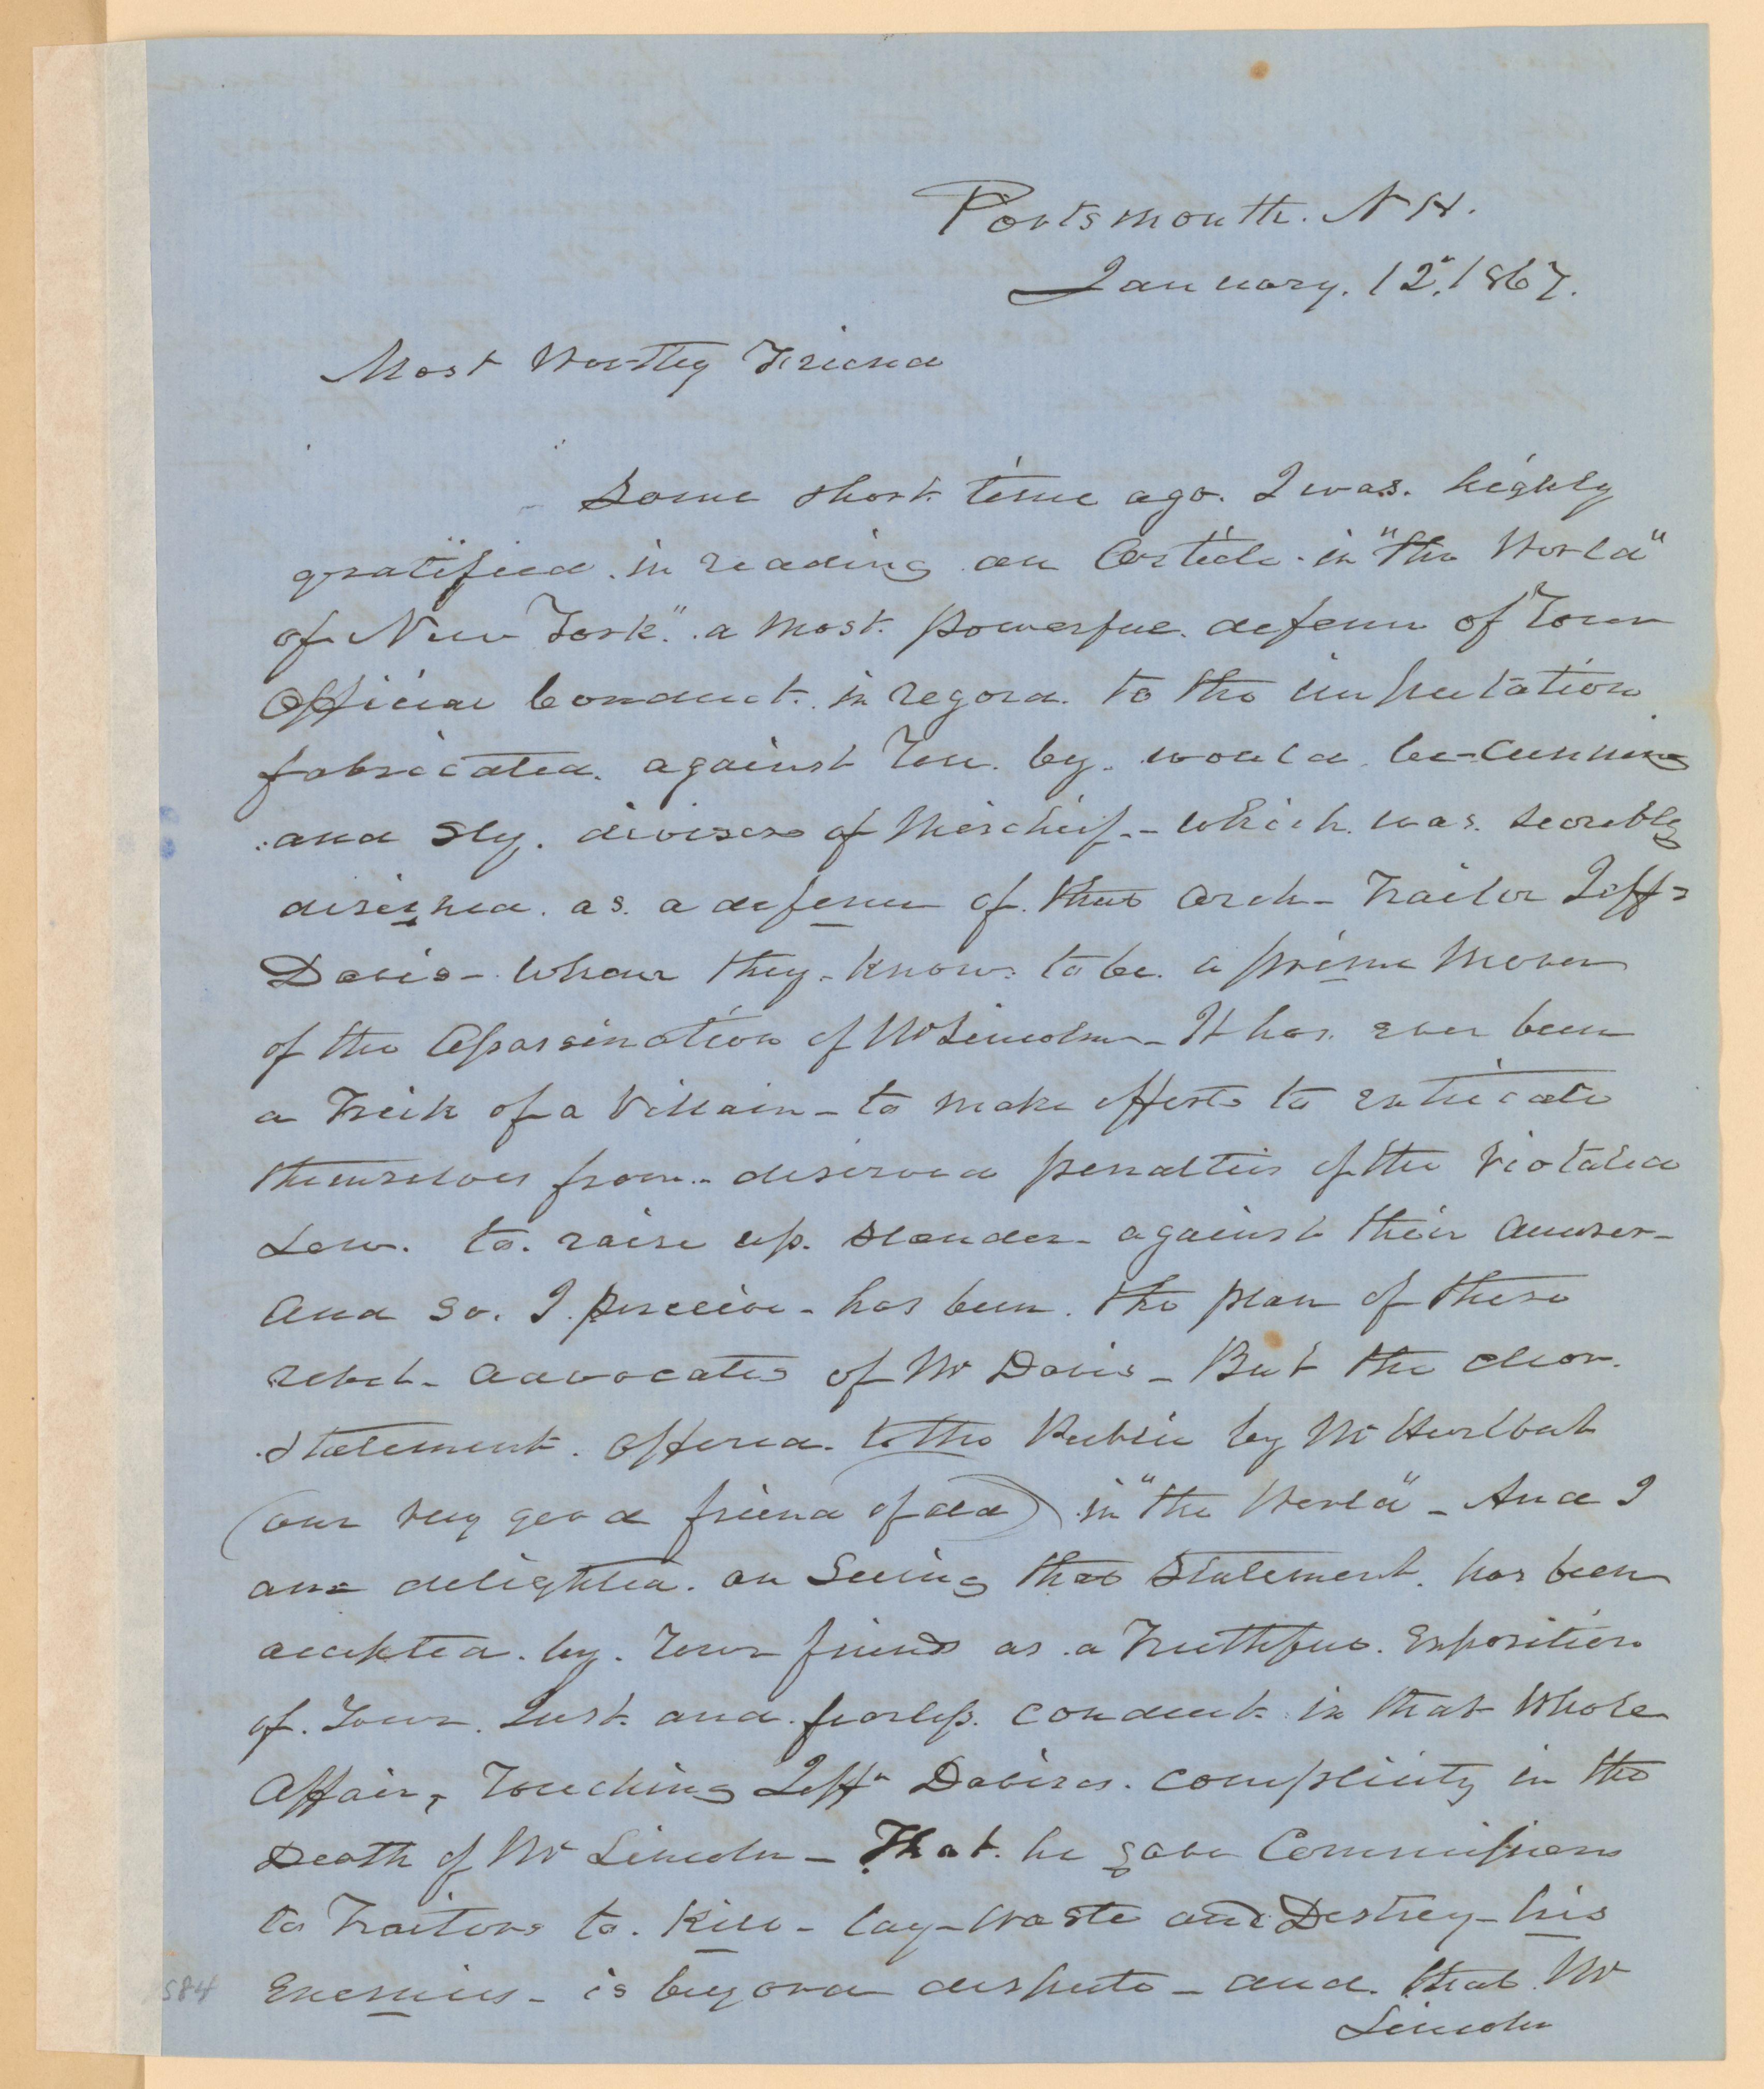 Portsmouth. N H.
January. 12. 1867.
Most Worthy Friend
Some short time ago. I was. highly
gratified. in reading an Article. in "the World"
of New York." a most. powerful. defence of Your
Official Conduct. in regard. to the imputation
fabricated. against You. by. would be-cunning
and sly. devisers of Mischief. - which. was. secretly
designed. as. a defence of. that arch- Traitor Jeff-
Davis - whom they - know: to be. a prime mover
of the Assassination of Mr Lincoln - It has. ever been
a Trick of a Villain - to make efforts to extricate
themselves from - deserved penalties of the Violated
Law. to. raise up. slander - against their accuser -
And so. I. perceive - has been. the plan of these
rebel - advocates of Mr Davis - But the clear.
statement. offered. to the Public by Mr Hurlbut
(our very good friend of old) in "the World" - And I
am delighted. on Seeing that Statement. has been
accepted. by. Your friends as. a Truthful. Exposition
of. Your. Just. and. fearless. conduct. in that Whole
Affair, Touching Jeff" Davises. complicity in the
Death of Mr Lincoln - That. he gave Commissions
to Traitors to. Kill - lay - waste and Destroy - his
Enemies - is beyond dispute - and. that Mr
Lincoln
584